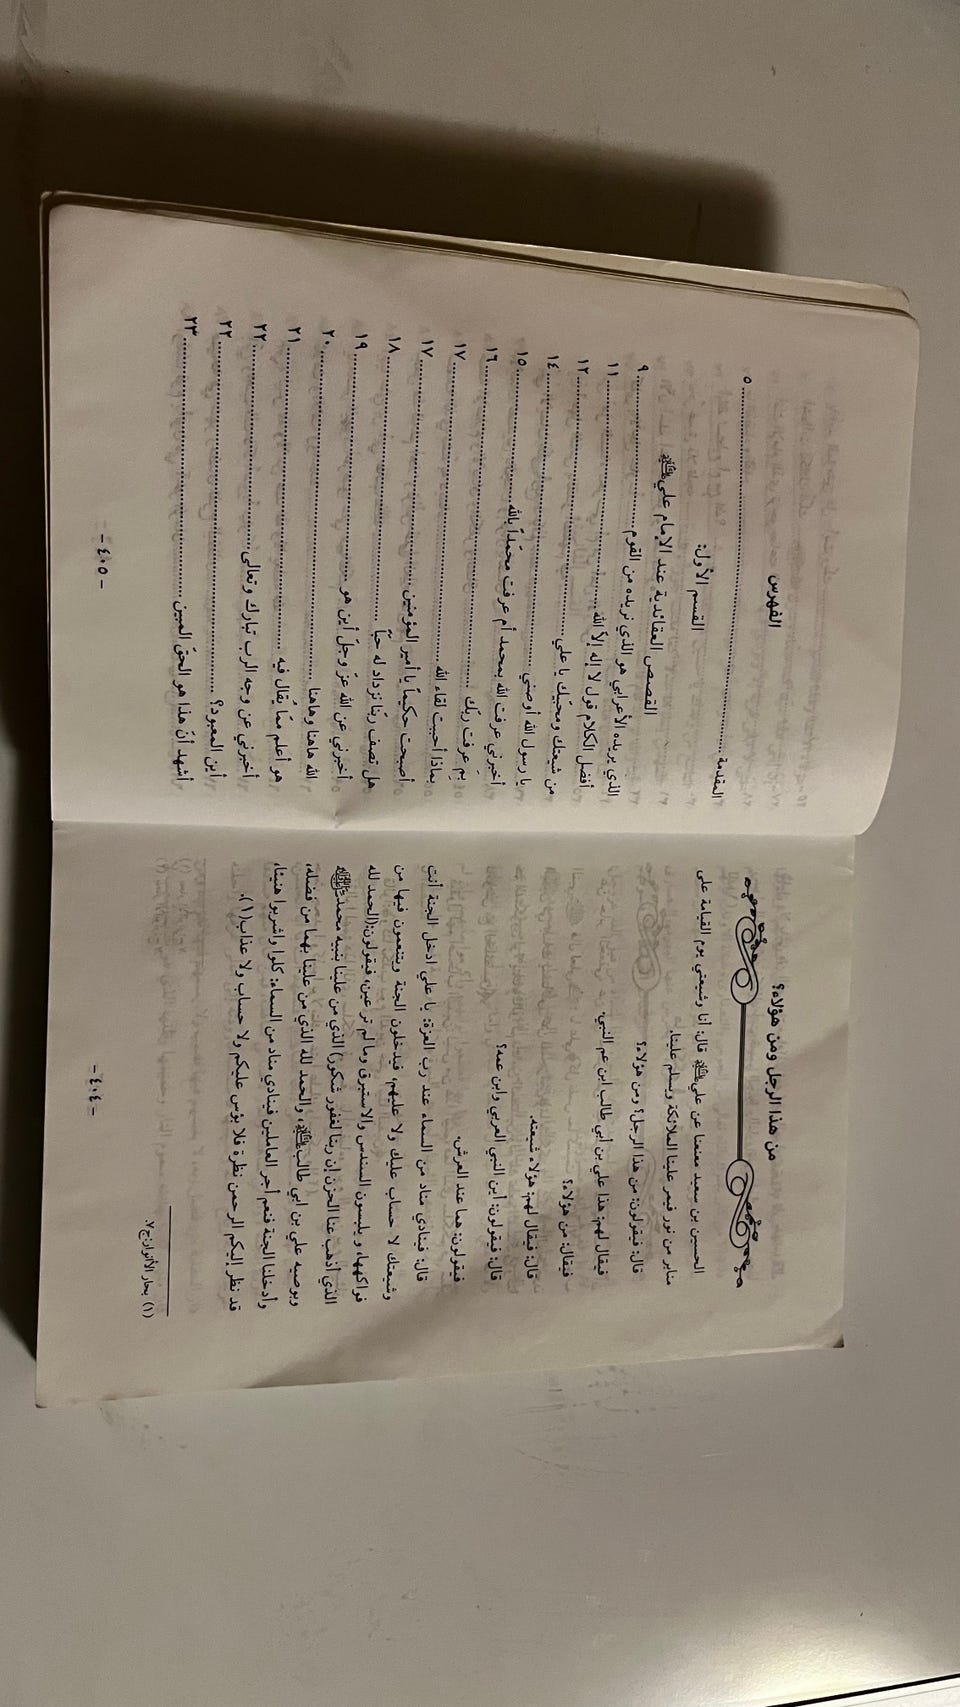 من هذا الرجل ومن هؤلاء؟
الحسين بن سعيد معنعنا عن علي عليه السلام قال: أنا وشيعتي يوم القيامة على
منابر من نور فيمر علينا الملائكة ويسلم علينا.
قال: فيقولون: من هذا الرجل؟ ومن هؤلاء؟
فيقال لهم: هذا علي بن أبي طالب ابن عم النبي.
فيقال: من هؤلاء؟
قال: فيقال لهم: هؤلاء شيعته.
قال: فيقولون: أين النبي العربي وابن عمه؟
فيقولون: هما عند العرش.
قال: فينادي مناد من السماء عند رب العزة: يا علي ادخل الجنة أنت
وشيعتك لا حساب عليك ولا عليهم، فيدخلون الجنة ويتنعمون فيها من
فواكهها، و يلبسون السندس والاستبرق وما لم تر عين، فيقولون: (الحمد لله
الذي أذهب عنا الحزن إن ربنا لغفور شكور) الذي من علينا بنبيه محمد ﷺ
وبوصيه علي بن أبي طالب عليه السلام، والحمد لله الذي من علينا بهما من فضله،
وأدخلنا الجنة فنعم أجر العاملين فينادي مناد من السماء: كلوا واشربوا هنيئا،
قد نظر إليكم الرحمن نظرة فلا بؤس عليكم ولا حساب ولا عذاب(١).
(١) بحار الأنوار: ج٧.
- ٤٠٤ -
الفهرس
المقدمة ..... ٥
القسم الأول:
القصص العقائدية عند الإمام علي عليه السلام
الذي يريده الأعرابي هو الذي نريده من القوم ..... ٩
أفضل الكلام قول لا إله إلا الله ..... ١١
من شيعتك ومحبّك يا علي ..... ١٢
يا رسول الله أوصني ..... ١٤
أخبرني عرفت الله بمحمد أم عرفت محمّداً بالله ..... ١٥
بِمَ عرفت ربّك ..... ١٦
بماذا أحببت لقاء الله ..... ١٧
أصبحت حكيماً يا أمير المؤمنين ..... ١٧
هل تصف ربّنا نزداد له حبّاً ..... ١٨
أخبرني عن الله عزّ وجلّ أين هو ..... ١٩
الله هاهنا وهاهنا ..... ٢٠
هو أعلم ممّا يُقال فيه ..... ٢١
أخبرني عن وجه الرب تبارك وتعالى ..... ٢٢
أين المعبود؟ ..... ٢٢
أشهد أنّ هذا هو الحقّ المبين ..... ٢٣
- ٤٠٥ -